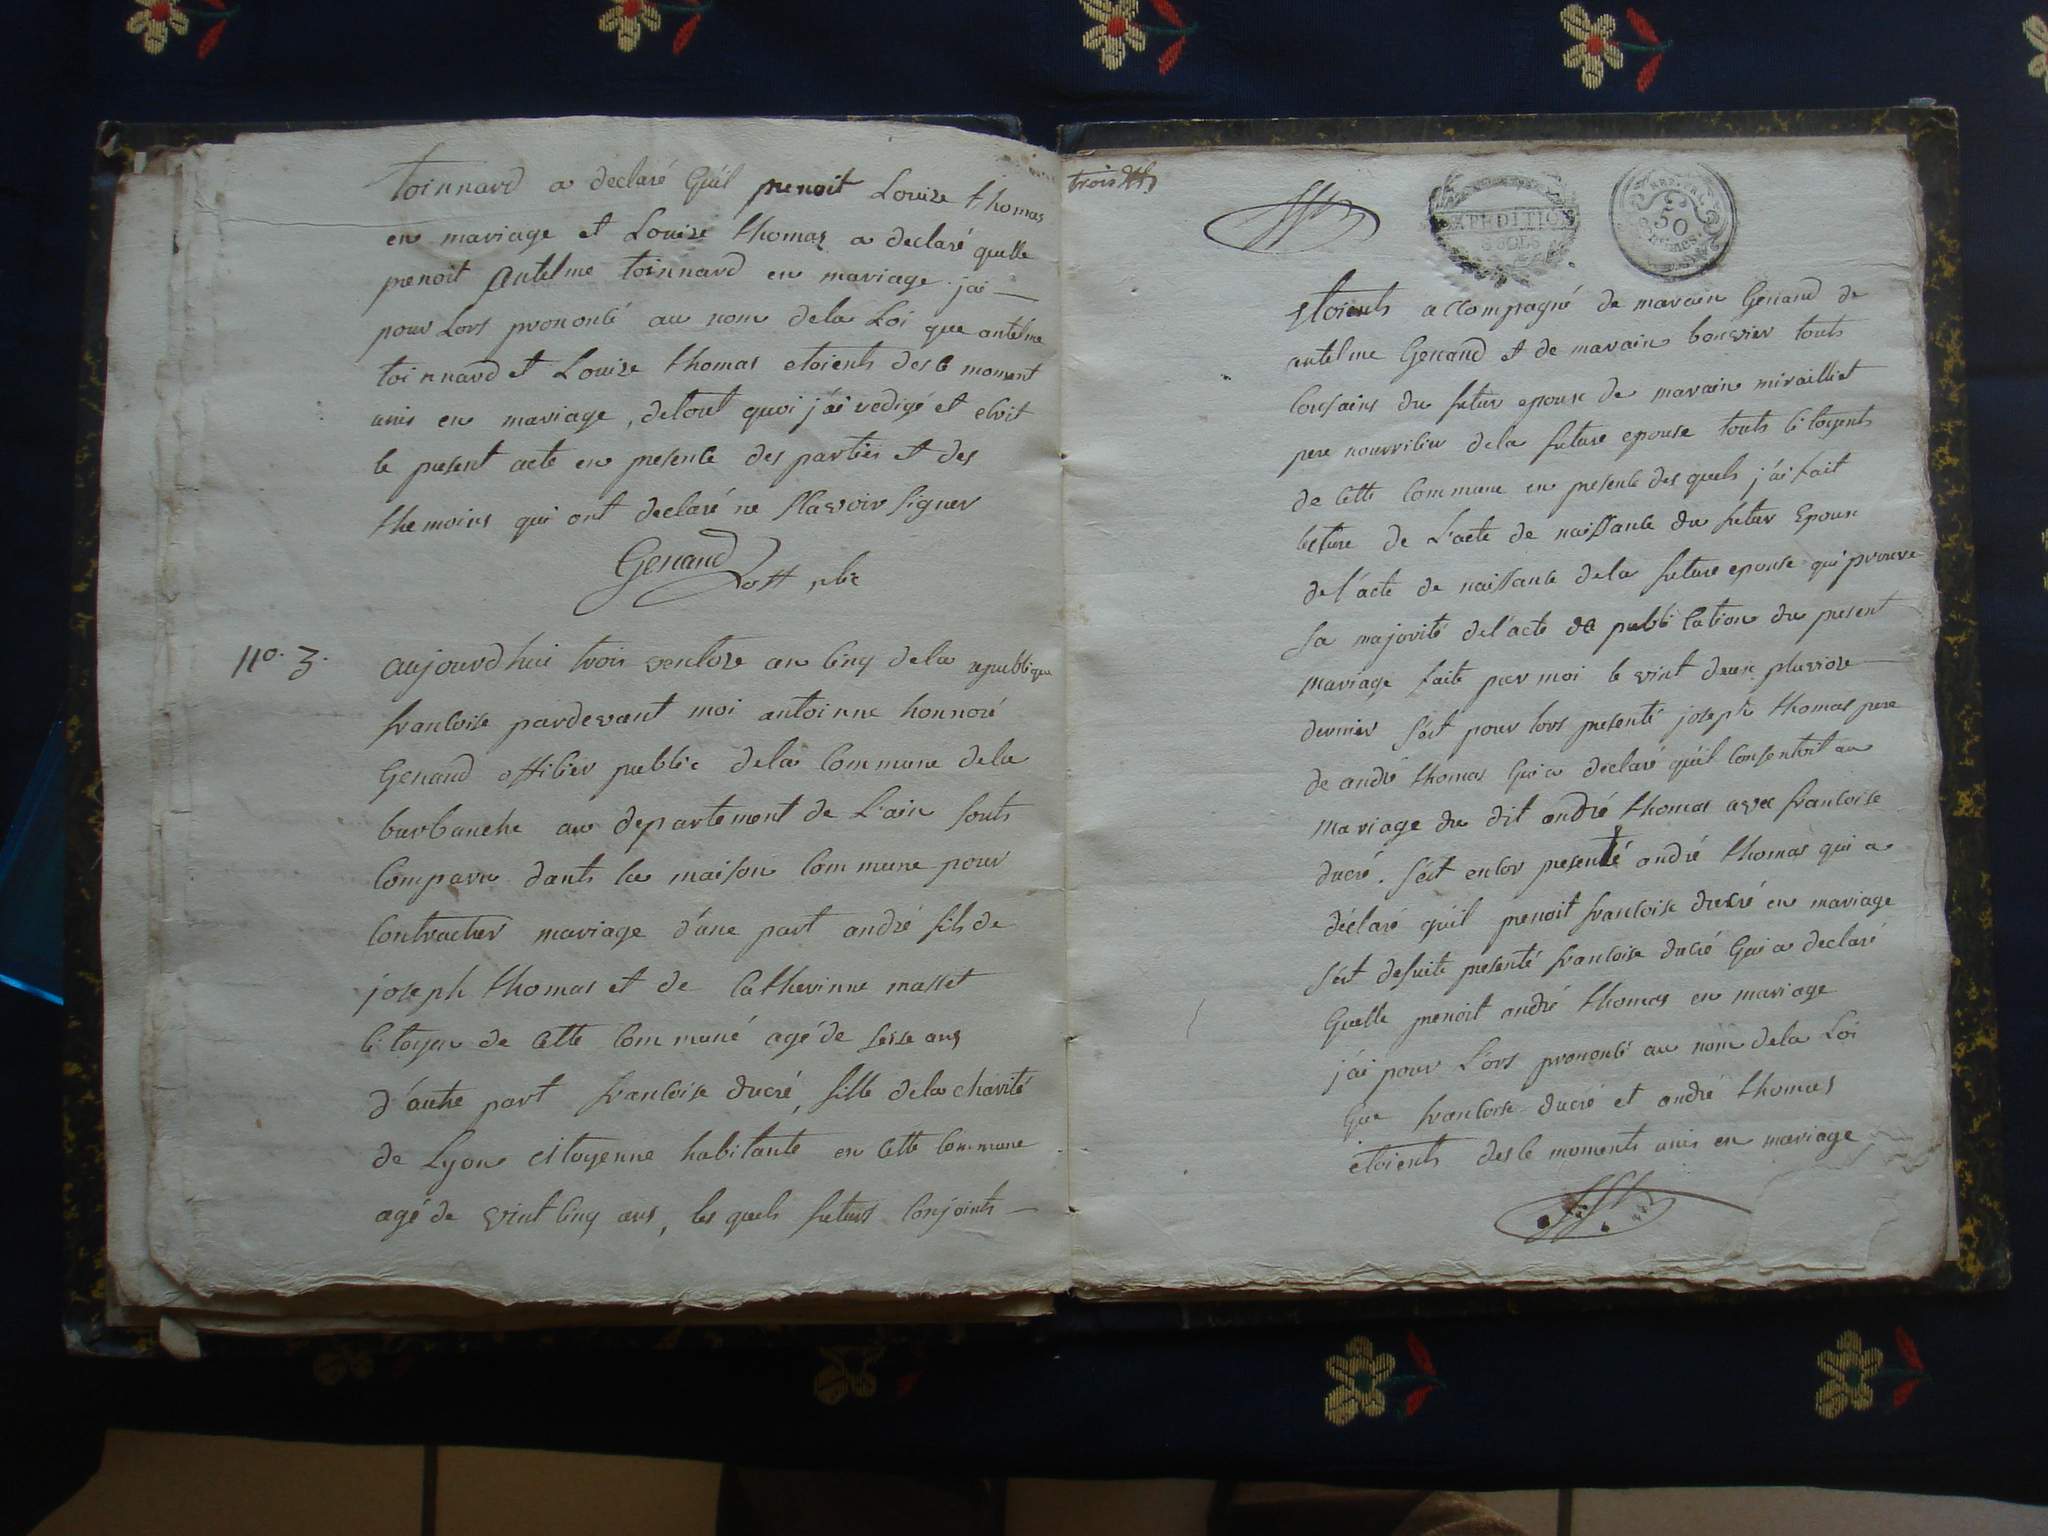 toinnard a declaré Qu'il prenoit Louise thomas
en mariage et Louise thomas a declaré quelle
prenoit antelme toinnard en mariage. jai
pour Lors prononcé au nom dela Loi que antelme
toinnard et Louise thomas etoients desce moment
unis en mariage, detout quoi j'ai redigé et ecrit
le present acte en presence des parties et des
themoins qui ont declaré ne scavoir signer
Genand off. plic
no. 3.
aujourdhui trois ventose an cinq dela republique
francoise pardevant moi antoinne honnoré
Genand officier public dela commune dela
burbanche au departement de L'ain sonts
comparu dants la maison commune pour
contracter mariage d'une part andré fils de
joseph thomas et de catherinne masset
citoyen de cette communé agé de seise ans
d'autre part francoise ducré, fille dela charité
de Lyon citoyenne habitante en cette commune
agé de vint cinq ans, les quels futurs conjoints
trois
EXPEDITION
REP. FRA.
50
etoients accompagné de marain Genand de
antelme Genand et de marain bouvier touts
cousains du futur epoux de marain mirailliet
pere nourricier dela future epouse touts citoyents
de cette commune en presence des quels j'ai fait
lecture de L'acte de naissance du futur Epoux
de l'acte de naissance dela future epouse qui prouve
sa majorité del'acte de publication du present
mariage faite par moi le vint deux pluviose
dernier s'est pour lors presenté joseph thomas pere
de andré thomas Qui a declaré qu'il consentoit au
mariage du dit andré thomas avec francoise
ducré. s'est encor presenté andré thomas qui a
déclaré qu'il prenoit francoise ducré en mariage
s'est desuite presenté francoise ducré Qui a declaré
Quelle prenoit andré thomas en mariage
j'ai pour L'ors prononcé au nom dela Loi
que francoise ducré et andré thomas
etoients desce moments unis en mariage